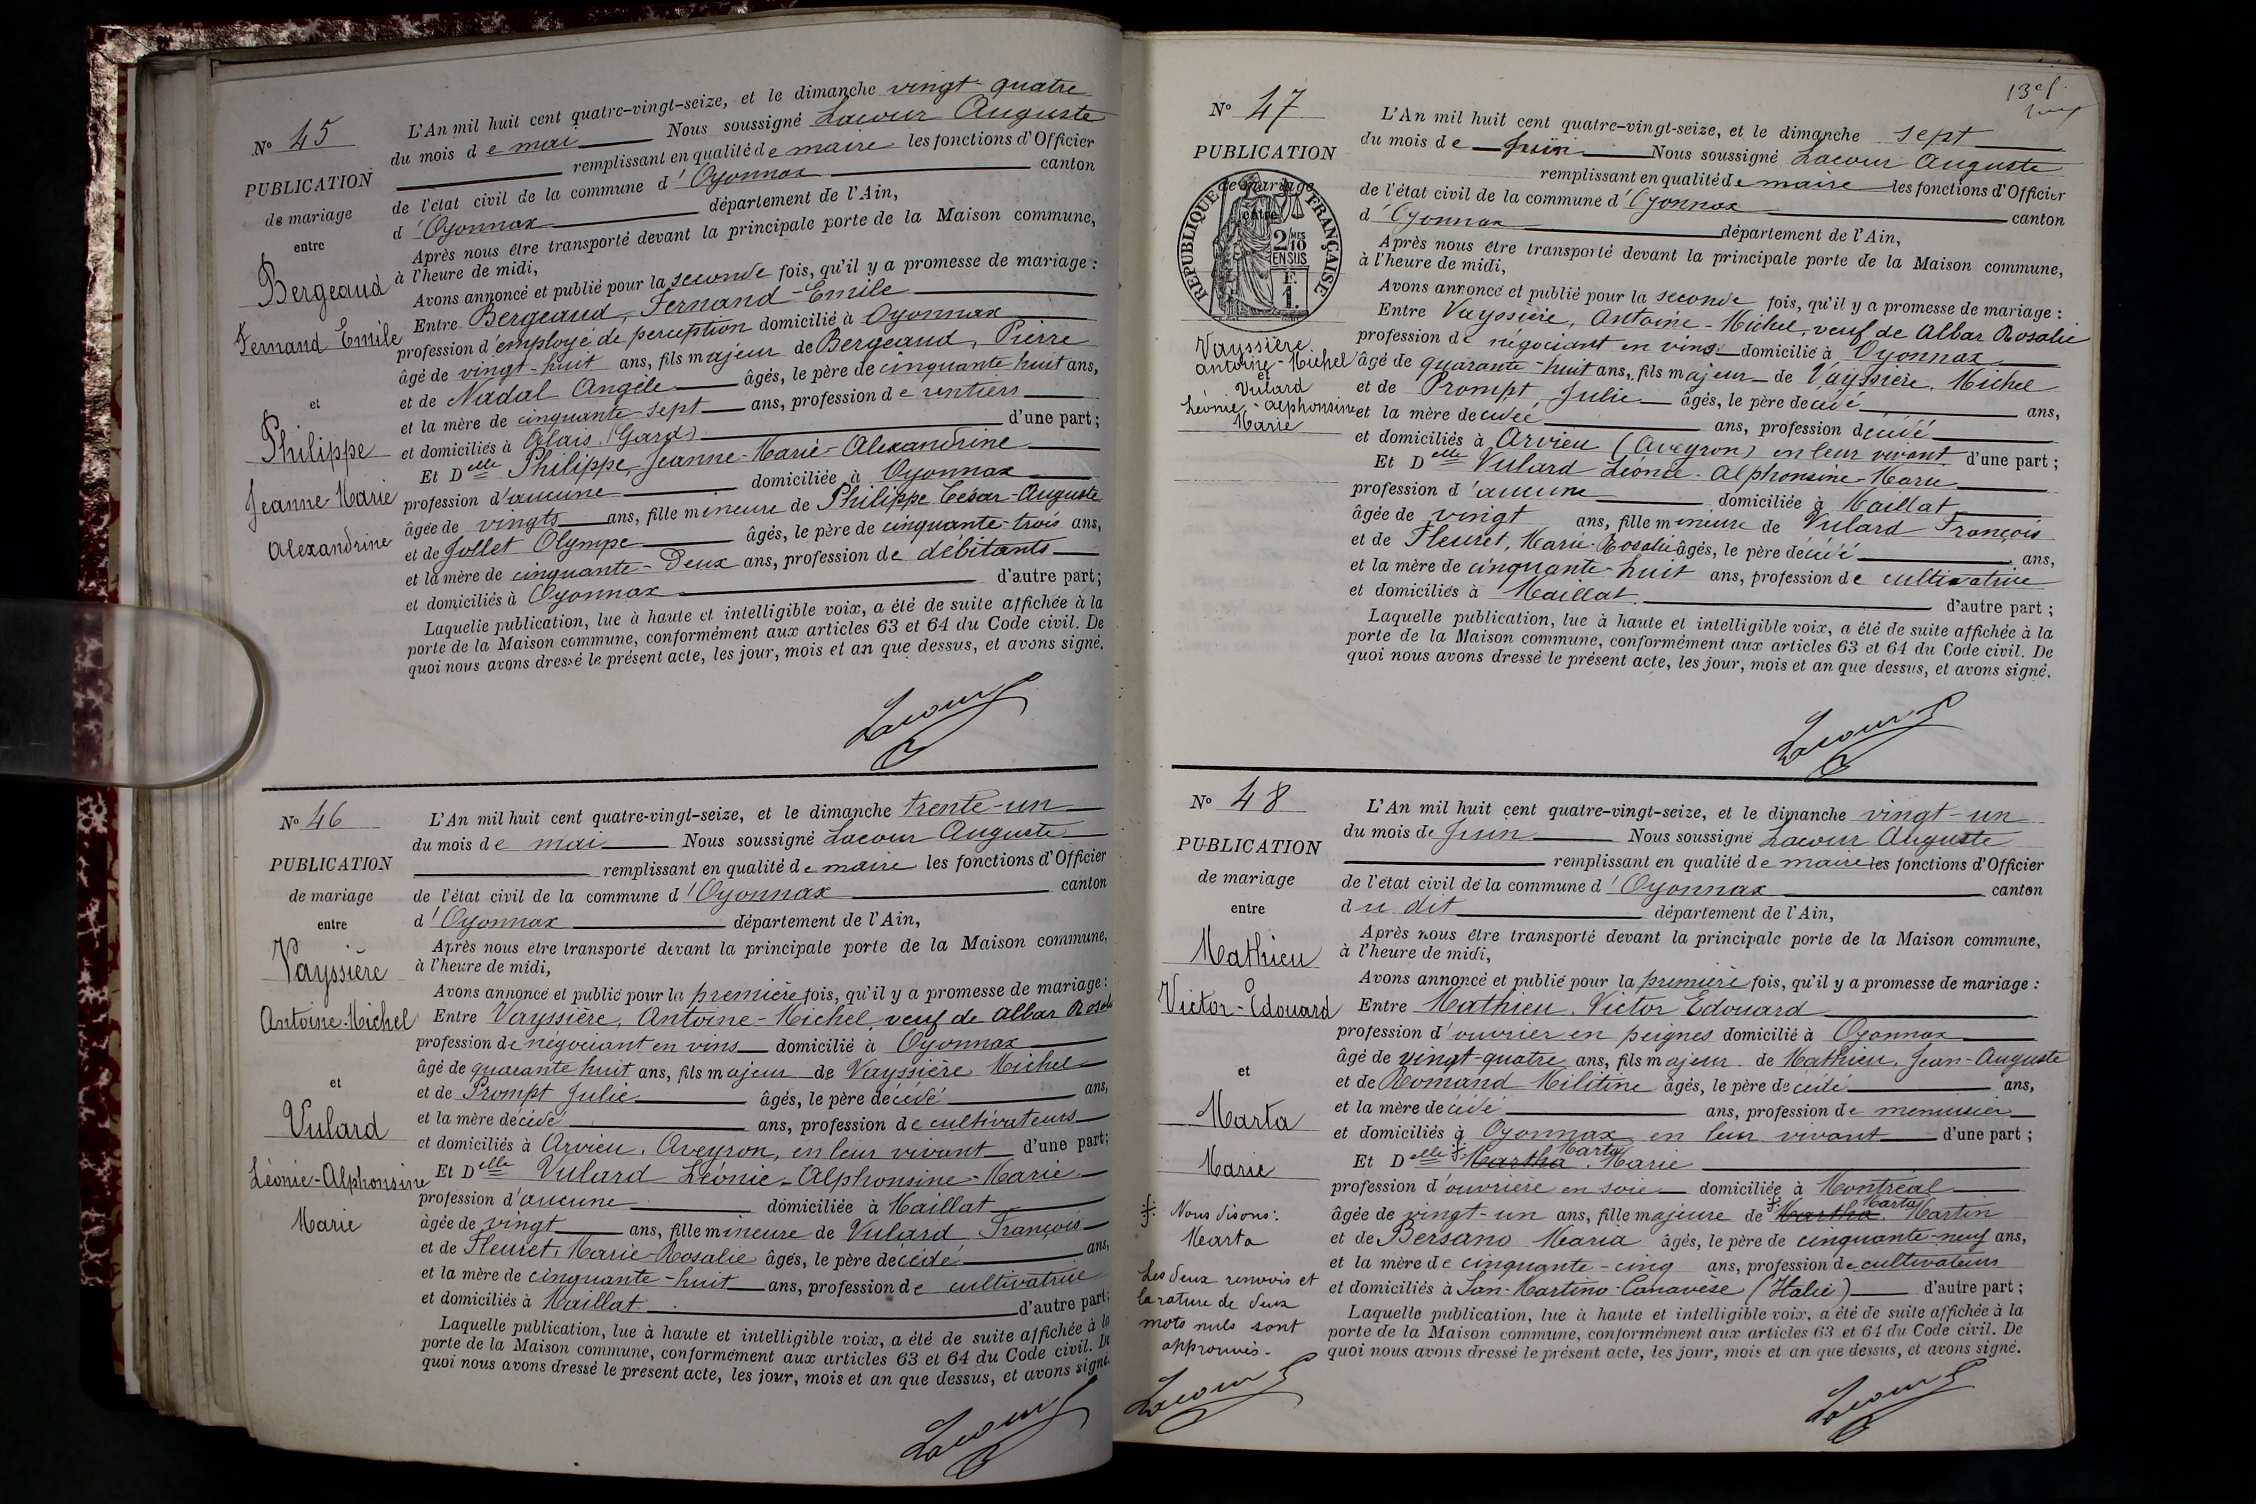 N° 45
PUBLICATION
de mariage
entre
Bergeaud
Fernand Emile
et
Philippe
Jeanne-Marie
Alexandrine
L'An mil huit cent quatre-vingt-seize, et le dimanche vingt-quatre
du mois de mai Nous soussigné Lacour Auguste
remplissant en qualité de maire les fonctions d'Officier
de l'état civil de la commune d'Oyonnax canton
d'Oyonnax département de l'Ain,
Après nous être transporté devant la principale porte de la Maison commune,
à l'heure de midi,
Avons annoncé et publié pour la seconde fois, qu'il y a promesse de mariage :
Entre Bergeaud, Fernand-Emile
profession d'employé de perception domicilié à Oyonnax
âgé de vingt-huit ans, fils majeur de Bergeaud, Pierre
et de Nadal Angèle âgés, le père de cinquante huit ans,
et la mère de cinquante sept ans, profession de rentiers
et domiciliés à Alais (Gard) d'une part ;
Et Delle Philippe, Jeanne-Marie-Alexandrine
profession d'aucune domiciliée à Oyonnax
âgée de vingts ans, fille mineure de Philippe César-Auguste
et de Jollet Olympe âgés, le père de cinquante-trois ans,
et la mère de cinquante-Deux ans, profession de débitants
et domiciliés à Oyonnax d'autre part ;
Laquelle publication, lue à haute et intelligible voix, a été de suite affichée à la
porte de la Maison commune, conformément aux articles 63 et 64 du Code civil. De
quoi nous avons dressé le présent acte, les jour, mois et an que dessus, et avons signé.
Lacour
N° 46
PUBLICATION
de mariage
entre
Vayssière
Antoine-Michel
et
Vulard
Léonie-Alphonsine
Marie
L'An mil huit cent quatre-vingt-seize, et le dimanche trente-un
du mois de mai Nous soussigné Lacour Auguste
remplissant en qualité de maire les fonctions d'Officier
de l'état civil de la commune d'Oyonnax canton
d'Oyonnax département de l'Ain,
Après nous être transporté devant la principale porte de la Maison commune,
à l'heure de midi,
Avons annoncé et publié pour la première fois, qu'il y a promesse de mariage :
Entre Vayssière, Antoine-Michel, veuf de Albar Rosalie
profession de négociant en vins domicilié à Oyonnax
âgé de quarante huit ans, fils majeur de Vayssière Michel
et de Prompt Julie âgés, le père décédé ans,
et la mère décédé ans, profession de cultivateurs
et domiciliés à Arvieu, Aveyron, en leur vivant d'une part ;
Et Delle Vulard Léonie-Alphonsine-Marie
profession d'aucune domiciliée à Maillat
âgée de vingt ans, fille mineure de Vulard François
et de Fleuret, Marie-Rosalie âgés, le père décédé ans,
et la mère de cinquante-huit ans, profession de cultivatrice
et domiciliés à Maillat d'autre part ;
Laquelle publication, lue à haute et intelligible voix, a été de suite affichée à la
porte de la Maison commune, conformément aux articles 63 et 64 du Code civil. De
quoi nous avons dressé le présent acte, les jour, mois et an que dessus, et avons signé.
Lacour
13ef.
N° 47
PUBLICATION
de mariage
entre
RÉPUBLIQUE FRANÇAISE
2/10 MES
EN SUS
F.
1.
Vayssière
Antoine-Michel
et
Vulard
Léonie-Alphonsine
Marie
L'An mil huit cent quatre-vingt-seize, et le dimanche sept
du mois de Juin Nous soussigné Lacour Auguste
remplissant en qualité de maire les fonctions d'Officier
de l'état civil de la commune d'Oyonnax canton
d'Oyonnax département de l'Ain,
Après nous être transporté devant la principale porte de la Maison commune,
à l'heure de midi,
Avons annoncé et publié pour la seconde fois, qu'il y a promesse de mariage :
Entre Vayssière, Antoine-Michel, veuf de Albar Rosalie
profession de négociant en vins domicilié à Oyonnax
âgé de quarante-huit ans, fils majeur de Vayssière, Michel
et de Prompt, Julie âgés, le père décédé ans,
et la mère décédé ans, profession décédé
et domiciliés à Arvieu (Aveyron) en leur vivant d'une part ;
Et Delle Vulard Léonie-Alphonsine-Marie
profession d'aucune domiciliée à Maillat
âgée de vingt ans, fille mineure de Vulard François
et de Fleuret, Marie-Rosalie âgés, le père décédé ans,
et la mère de cinquante-huit ans, profession de cultivatrice
et domiciliés à Maillat d'autre part ;
Laquelle publication, lue à haute et intelligible voix, a été de suite affichée à la
porte de la Maison commune, conformément aux articles 63 et 64 du Code civil. De
quoi nous avons dressé le présent acte, les jour, mois et an que dessus, et avons signé.
Lacour
N° 48
PUBLICATION
de mariage
entre
Mathieu
Victor-Edouard
et
Marta
Marie
Nous disons :
Marta
Les deux renvois et
la rature de deux
mots nuls sont
approuvés.
Lacour
L'An mil huit cent quatre-vingt-seize, et le dimanche vingt-un
du mois de Juin Nous soussigné Lacour Auguste
remplissant en qualité de maire les fonctions d'Officier
de l'état civil de la commune d'Oyonnax canton
du dit département de l'Ain,
Après nous être transporté devant la principale porte de la Maison commune,
à l'heure de midi,
Avons annoncé et publié pour la première fois, qu'il y a promesse de mariage :
Entre Mathieu, Victor Edouard
profession d'ouvrier en peignes domicilié à Oyonnax
âgé de vingt-quatre ans, fils majeur de Mathieu, Jean-Auguste
et de Romand Militine âgés, le père décédé ans,
et la mère décédé ans, profession de menuisier
et domiciliés à Oyonnax en leur vivant d'une part ;
Et Delle Martha Marta Marie
profession d'ouvrière en soie domiciliée à Montréal
âgée de vingt-un ans, fille majeure de Martha Marta Martin
et de Bersano Maria âgés, le père de cinquante-neuf ans,
et la mère de cinquante-cinq ans, profession de cultivateurs
et domiciliés à San-Martino-Canavèse (Italie) d'autre part ;
Laquelle publication, lue à haute et intelligible voix, a été de suite affichée à la
porte de la Maison commune, conformément aux articles 63 et 64 du Code civil. De
quoi nous avons dressé le présent acte, les jour, mois et an que dessus, et avons signé.
Lacour